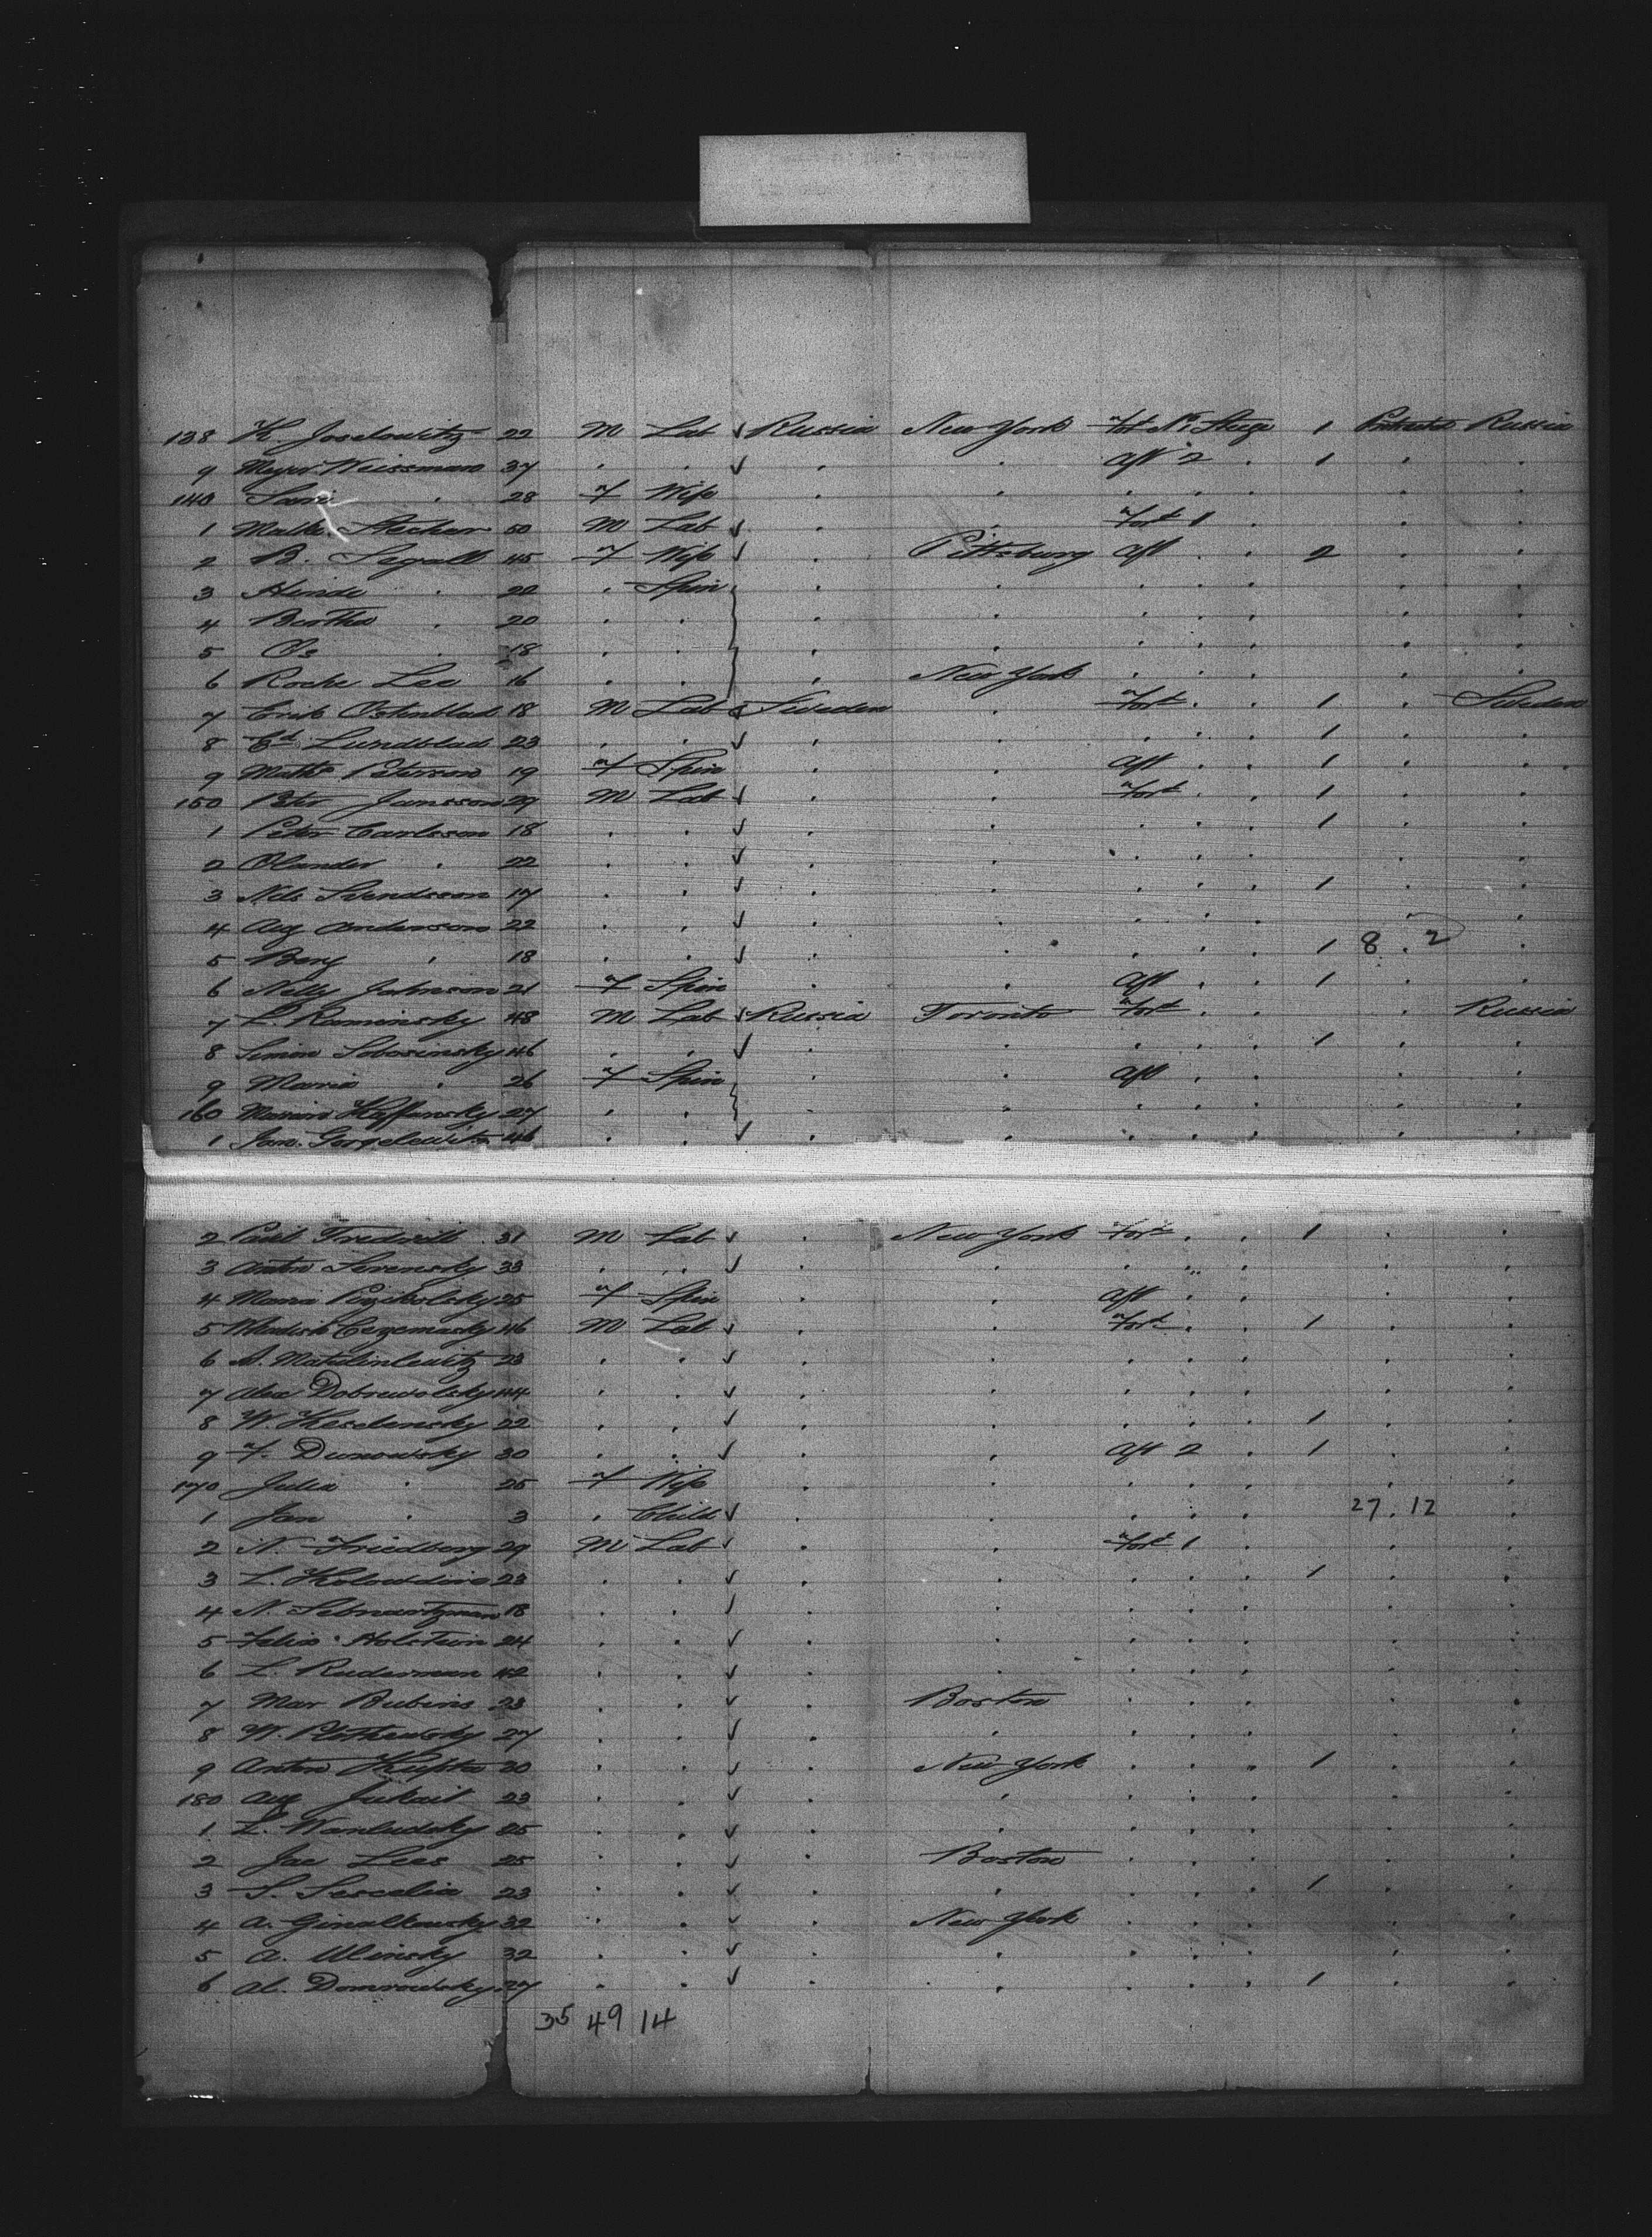 138 K. Joselowitz 22 M Lab ✓ Russia New York For'd No 1 Steerage 1 Protracted Russia
9 Meyer Weissman 37 . . ✓ . . Aft 2 . 1 . .
140 Sari . 28 F Wife . . . . . . .
1 Malke 50 M Lab ✓ . . For'd 1 . . .
2 B. Segall 45 F Wife ✓ . Pittsburg Aft . . 2 . .
3 Hinde . 22 . Spin . . . . . . .
4 Bertha . 20 . . . . . . . . .
5 Os . 18 . . . . . . . . .
6 Roche Lee 16 . . . New York . . . . .
7 Erik Ostenblad 18 M Lab ✓ Sweden . For'd . . 1 . Sweden
8 Ed Lundblad 23 . . ✓ . . . . . 1 . .
9 Math Peterson 19 F Spin . . Aft . . 1 . .
150 Peter Jansson 29 M Lab ✓ . . For'd . . 1 . .
1 Peter Carlsson 18 . . ✓ . . . . . 1 . .
2 Olander . 22 . . ✓ . . . . . . .
3 Nils Svendsson 17 . . ✓ . . . . . 1 . .
4 Aug Anderson 22 . . ✓ . . . . . . .
5 Berg . 18 . . ✓ . . . . . 1 8 . 2 .
6 Nelly Johnson 21 F Spin . . Aft . . 1 . .
7 L. Kaminsky 48 M Lab ✓ Russia Toronto For'd . . . Russia
8 Simon Sobosinsky 46 . . ✓ . . . . . 1 . .
9 Maria . 26 F Spin . . Aft . . . .
160 27 . . . . . . . . .
1 Jan. 46 . . ✓ . . . . . . .
2 31 M Lab ✓ . New York For'd . . 1 . .
3 Anton Serensky 33 . . ✓ . . . . . . .
4 Maria 25 F Spin . . Aft . . . .
5 46 M Lab ✓ . . For'd . . 1 . .
6 A. Matulinlewitz 23 . . ✓ . . . . . . .
7 Alex Dobrowolsky 44 . . ✓ . . . . . . .
8 W. 22 . . ✓ . . . . . 1 . .
9 F. Dunowsky 30 . . ✓ . . Aft 2 . 1 . .
170 Julia . 25 F Wife . . . . . . .
1 Jan . 3 . Child ✓ . . . . . 27 . 12 .
2 N. Friedberg 29 M Lab ✓ . . For'd 1 . . .
3 L. 23 . . ✓ . . . . . 1 . .
4 N. Schwartzman 18 . . ✓ . . . . . . .
5 Felix Holstein 24 . . ✓ . . . . . . .
6 L. Ruderman 42 . . ✓ . . . . . . .
7 Mar Rubins 23 . . ✓ . Boston . . . . .
8 W. 27 . . ✓ . . . . . . .
9 Anton 20 . . ✓ . New York . . . 1 . .
180 Aug Jukait 23 . . ✓ . . . . . . .
1 L. 25 . . ✓ . . . . . . .
2 Jac Lees 25 . . ✓ . Boston . . . . .
3 S. 23 . . ✓ . . . . . 1 . .
4 A. 32 . . ✓ . New York . . . . .
5 A. Ulinsky 32 . . ✓ . . . . . . .
6 Al. Domrowsky 27 . . ✓ . . . . . 1 . .
35 49 14